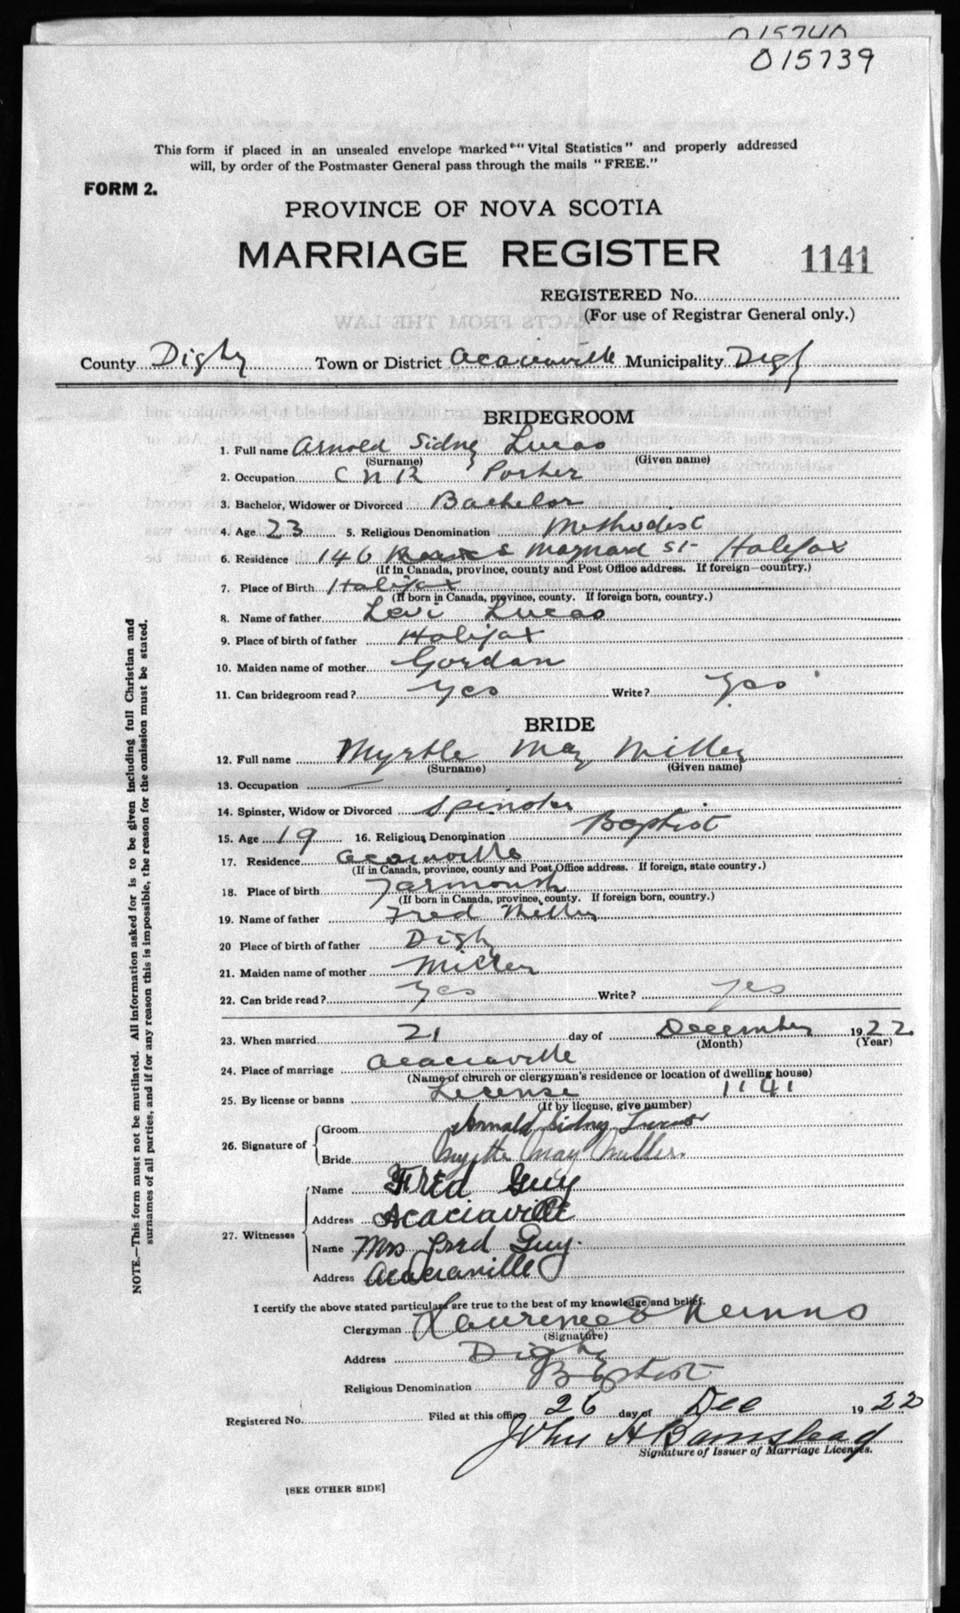 015740
015739
This form if placed in an unsealed envelope marked "Vital Statistics" and properly addressed
will, by order of the Postmaster General pass through the mails "FREE."
FORM 2.
PROVINCE OF NOVA SCOTIA
MARRIAGE REGISTER 1141
REGISTERED No.
(For use of Registrar General only.)
EXTRACTS FROM THE LAW
County Digby Town or District Acaciaville Municipality Digby
BRIDEGROOM
1. Full name Arnold Sidney Lucas
(Surname) (Given name)
2. Occupation C N R Porter
3. Bachelor, Widower or Divorced Bachelor
4. Age 23 5. Religious Denomination Methodist
6. Residence 146 Maynard St- Halifax
(If in Canada, province, county and Post Office address. If foreign—country.)
7. Place of Birth Halifax
(If born in Canada, province, county. If foreign born, country.)
8. Name of father Levi Lucas
9. Place of birth of father Halifax
10. Maiden name of mother Gordan
11. Can bridegroom read? Yes Write? Yes
BRIDE
12. Full name Myrtle May Miller
(Surname) (Given name)
13. Occupation —
14. Spinster, Widow or Divorced Spinster
15. Age 19 16. Religious Denomination Baptist
17. Residence Acaciaville
(If in Canada, province, county and Post Office address. If foreign, state country.)
18. Place of birth Yarmouth
(If born in Canada, province, county. If foreign born, country.)
19. Name of father Fred Miller
20 Place of birth of father Digby
21. Maiden name of mother Miller
22. Can bride read? Yes Write? Yes
23. When married 21 day of December 1922
(Month) (Year)
24. Place of marriage Acaciaville
(Name of church or clergyman's residence or location of dwelling house)
25. By license or banns License 1141
(If by license, give number)
26. Signature of Groom Arnold Sidney Lucas
Bride Myrtle May Miller.
27. Witnesses Name Fred Guy
Address Acaciaville
Name Mrs Fred Guy.
Address Acaciaville
I certify the above stated particulars are true to the best of my knowledge and belief.
Clergyman
(Signature)
Address Digby
Religious Denomination Baptist
Registered No. Filed at this office 26 day of Dec 1922
John H Bamstead
Signature of Issuer of Marriage Licenses.
[SEE OTHER SIDE]
NOTE.—This form must not be mutilated. All information asked for is to be given including full Christian and
surnames of all parties, and if for any reason this is impossible, the reason for the omission must be stated.